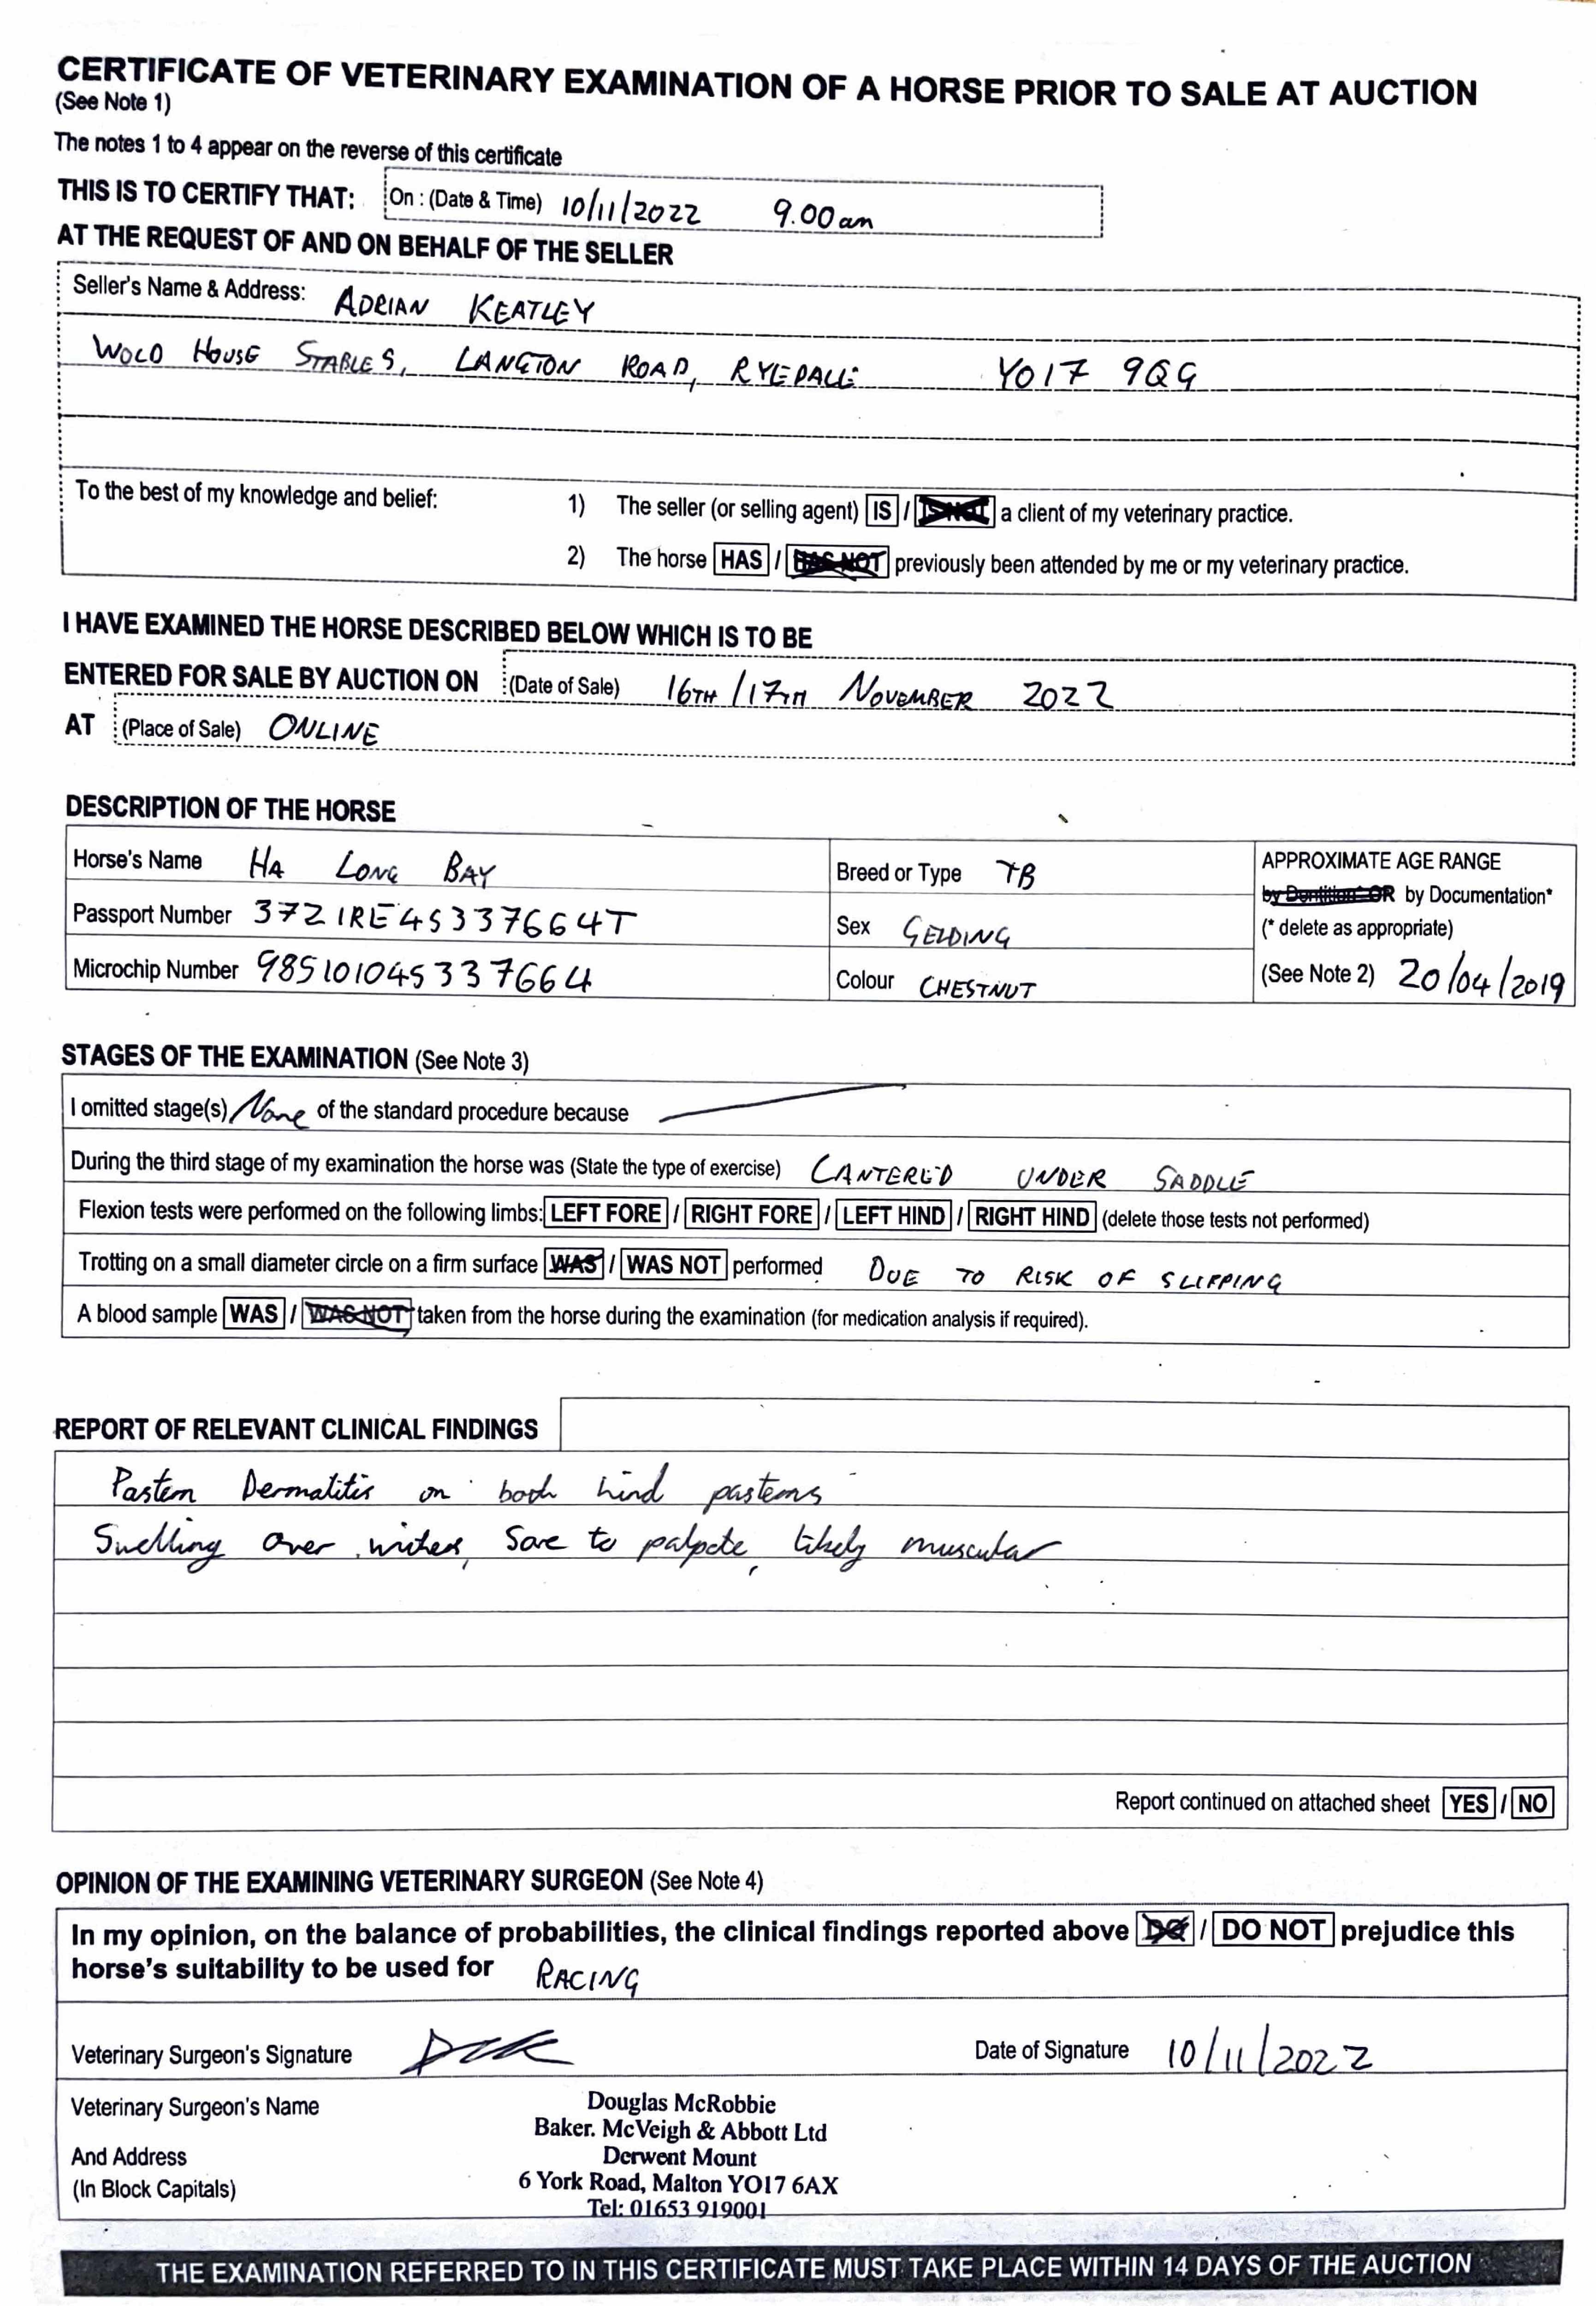 CERTIFICATE OF VETERINARY EXAMINATION OF A HORSE PRIOR TO SALE AT AUCTION
(See Note 1)
The notes 1 to 4 appear on the reverse of this certificate
THIS IS TO CERTIFY THAT: On : (Date & Time) 10/11/2022 9.00am
AT THE REQUEST OF AND ON BEHALF OF THE SELLER
Seller's Name & Address: ADRIAN KEATLEY
WOLD HOUSE STABLES, LANGTON ROAD, RYEDALE YO17 9QG
To the best of my knowledge and belief: 1) The seller (or selling agent) IS / IS NOT a client of my veterinary practice.
2) The horse HAS / HAS NOT previously been attended by me or my veterinary practice.
I HAVE EXAMINED THE HORSE DESCRIBED BELOW WHICH IS TO BE
ENTERED FOR SALE BY AUCTION ON (Date of Sale) 16TH /17TH NOVEMBER 2022
AT (Place of Sale) ONLINE
DESCRIPTION OF THE HORSE
Horse's Name HA LONG BAY
Passport Number 372IRE45337664T
Microchip Number 985101045337664
Breed or Type TB
Sex GELDING
Colour CHESTNUT
APPROXIMATE AGE RANGE
by Dentition* OR by Documentation*
(* delete as appropriate)
(See Note 2) 20/04/2019
STAGES OF THE EXAMINATION (See Note 3)
I omitted stage(s) None of the standard procedure because
During the third stage of my examination the horse was (State the type of exercise) CANTERED UNDER SADDLE
Flexion tests were performed on the following limbs: LEFT FORE / RIGHT FORE / LEFT HIND / RIGHT HIND (delete those tests not performed)
Trotting on a small diameter circle on a firm surface WAS / WAS NOT performed DUE TO RISK OF SLIPPING
A blood sample WAS / WAS NOT taken from the horse during the examination (for medication analysis if required).
REPORT OF RELEVANT CLINICAL FINDINGS
Pastern Dermatitis on both hind pasterns
Swelling over withers, Sore to palpate, likely muscular
Report continued on attached sheet YES / NO
OPINION OF THE EXAMINING VETERINARY SURGEON (See Note 4)
In my opinion, on the balance of probabilities, the clinical findings reported above DO / DO NOT prejudice this
horse's suitability to be used for RACING
Veterinary Surgeon's Signature Date of Signature 10/11/2022
Veterinary Surgeon's Name
And Address
(In Block Capitals)
Douglas McRobbie
Baker. McVeigh & Abbott Ltd
Derwent Mount
6 York Road, Malton YO17 6AX
Tel: 01653 919001
THE EXAMINATION REFERRED TO IN THIS CERTIFICATE MUST TAKE PLACE WITHIN 14 DAYS OF THE AUCTION